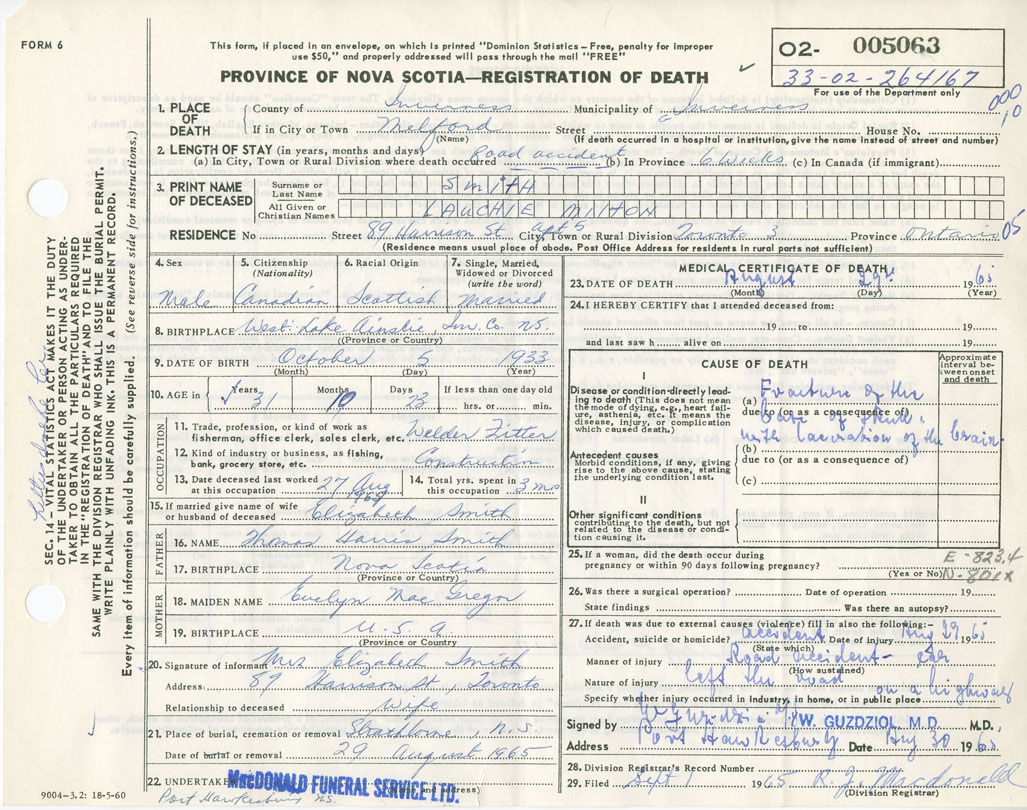 FORM 6
This form, if placed in an envelope, on which is printed "Dominion Statistics – Free, penalty for improper
use $50," and properly addressed will pass through the mail "FREE"
PROVINCE OF NOVA SCOTIA—REGISTRATION OF DEATH
02- 005063
33-02-264167
For use of the Department only
000
10
1. PLACE OF DEATH
County of Inverness Municipality of Inverness
If in City or Town Melford Street House No.
(Name) (If death occurred in a hospital or institution, give the name instead of street and number)
2. LENGTH OF STAY (in years, months and days)
(a) In City, Town or Rural Division where death occurred Road accident (b) In Province 6 Weeks (c) In Canada (if immigrant)
3. PRINT NAME OF DECEASED
Surname or Last Name SMITH
All Given or Christian Names LAUCHIE MILTON
RESIDENCE No Street 89 Harrison St apt 5 City, Town or Rural Division Toronto 3 Province Ontario 05
(Residence means usual place of abode. Post Office Address for residents in rural parts not sufficient)
SEC. 14 – VITAL STATISTICS ACT MAKES IT THE DUTY
OF THE UNDERTAKER OR PERSON ACTING AS UNDER-
TAKER TO OBTAIN ALL THE PARTICULARS REQUIRED
IN THE "REGISTRATION OF DEATH" AND TO FILE THE
SAME WITH THE DIVISION REGISTRAR WHO SHALL ISSUE THE BURIAL PERMIT.
WRITE PLAINLY WITH UNFADING INK. THIS IS A PERMANENT RECORD.
Every item of information should be carefully supplied. (See reverse side for instructions.)
4. Sex Male
5. Citizenship (Nationality) Canadian
6. Racial Origin Scottish
7. Single, Married, Widowed or Divorced (write the word) Married
8. BIRTHPLACE West Lake Ainslie, Inv. Co. N.S.
(Province or Country)
9. DATE OF BIRTH October 5 1933
(Month) (Day) (Year)
10. AGE in Years 31 Months 10 Days 23 If less than one day old hrs. or min.
OCCUPATION
11. Trade, profession, or kind of work as
fisherman, office clerk, sales clerk, etc. Welder Fitter
12. Kind of industry or business, as fishing,
bank, grocery store, etc. Construction
13. Date deceased last worked at this occupation 27 Aug
14. Total yrs. spent in this occupation 3 mos
15. If married give name of wife or husband of deceased Elizabeth Smith
FATHER
16. NAME Thomas Harris Smith
17. BIRTHPLACE Nova Scotia
(Province or Country)
MOTHER
18. MAIDEN NAME Evelyn Mac Gregor
19. BIRTHPLACE U.S.A.
(Province or Country)
20. Signature of informant Mrs Elizabeth Smith
Address: 89 Harrison St, Toronto
Relationship to deceased Wife
21. Place of burial, cremation or removal Strathlorne, N.S.
Date of burial or removal 29 August 1965
22. UNDERTAKER MacDONALD FUNERAL SERVICE LTD.
(Name and address)
Port Hawkesbury N.S.
9004-3.2: 18-5-60
MEDICAL CERTIFICATE OF DEATH
23. DATE OF DEATH August 29th 1965
(Month) (Day) (Year)
24. I HEREBY CERTIFY that I attended deceased from:
19 to 19
and last saw h alive on 19
CAUSE OF DEATH
Approximate interval between onset and death
I
Disease or condition directly lead-
ing to death (This does not mean
the mode of dying, e.g., heart fail-
ure, asthenia, etc. It means the
disease, injury, or complication
which caused death.)
(a) Fracture of the
due to (or as a consequence of)
base of skull
with laceration of the brain
(b)
Antecedent causes
Morbid conditions, if any, giving
rise to the above cause, stating
the underlying condition last.
due to (or as a consequence of)
(c)
II
Other significant conditions
contributing to the death, but not
related to the disease or condi-
tion causing it.
25. If a woman, did the death occur during
pregnancy or within 90 days following pregnancy?
(Yes or No)
E-823.4
N-801x
26. Was there a surgical operation? Date of operation 19
State findings Was there an autopsy?
27. If death was due to external causes (violence) fill in also the following:-
Accident, suicide or homicide? accident Date of injury Aug 29 1965
(State which)
Manner of injury Road accident – car
(How sustained)
Nature of injury left the road
on a highway
Specify whether injury occurred in industry, in home, or in public place
Signed by W. GUZDZIOL, M.D. M.D.,
Address Port Hawkesbury Date Aug 30 1965
28. Division Registrar's Record Number
29. Filed Sept 1 1965 R. J. Macdonald
(Division Registrar)